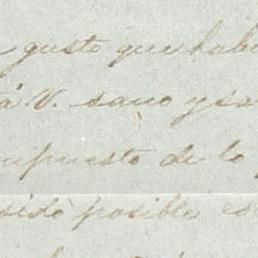 gusto que habi
tá V. sano y sa
mpuesto de lo
sido posible es